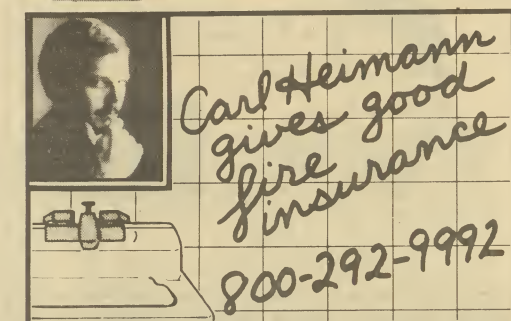 Carl Heimann
gives good
fire
insurance
800-292-9992